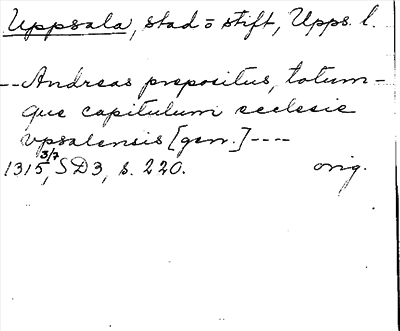 Uppsala, stad o stift, Upps. l.
--Andreas prepositus, totum-
que capitulum ecclesie
vpsalensis [gen.]----
1315 3/7, SD3, s. 220. orig.